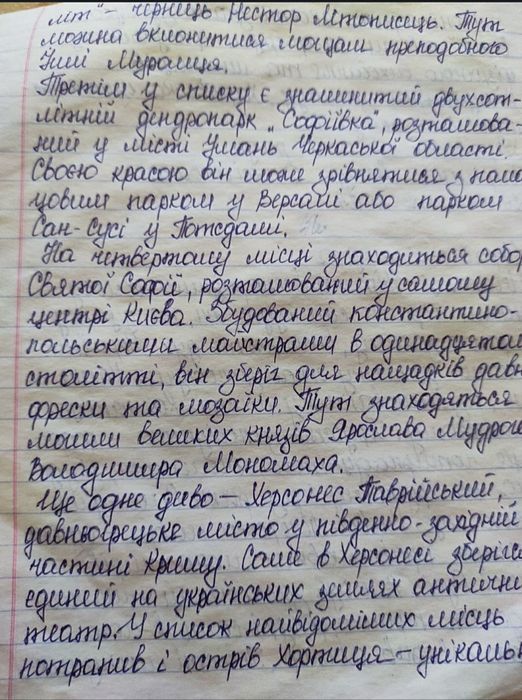 літ" – чернець Нестор Літописець. Тут
можна вклонитися мощам преподобного
Іллі Муромця.
Третім у списку є знаменитий двухсот-
літній дендропарк „Софіївка", розташова-
ний у місті Умань Черкаської області.
Своєю красою він може зрівнятися з пала
цовим парком у Версалі або парком
Сан-Сусі у Потсдамі.
На четвертому місці знаходиться собор
Святої Софії, розташований у самому
центрі Києва. Збудований константино-
польськими майстрами в одинадцятом
столітті, він зберіг для нащадків давн
фрески та мозаїки. Тут знаходяться
мощі великих князів Ярослава Мудро
Володимира Мономаха.
Ще одне диво – Херсонес Таврійський,
давньогрецьке місто у південно-західній
частині Криму. Саме в Херсонесі зберігс
єдиний на українських землях античн
театр. У список найвідоміших місць
потрапив і острів Хортиця – унікальн